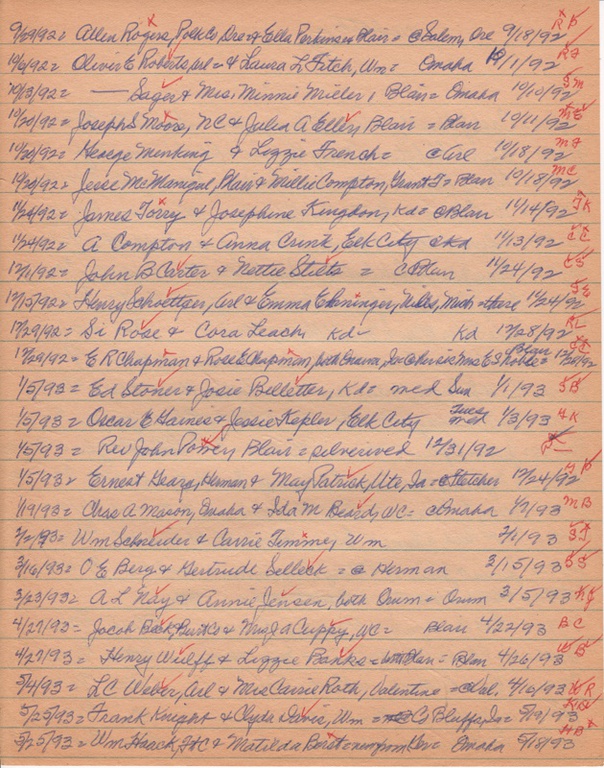 9/29/92 = Allen Rogers, Polk Co, Ore & Ella Perkins Blair = @ Salem, Ore 9/18/92 R P
10/6/92 = Oliver E Roberts, Arl = & Laura L Fitch, Wm = Omaha 10/1/92 R F
10/13/92 = — Sager & Mrs. Minnie Mieler, Blair = Omaha 10/10/92 S M
10/20/92 = Joseph S Moore, NC & Julia A Eller, Blair = Blair 10/11/92 M E
10/20/92 = George Menking & Lizzie French = @ Arl 10/18/92 M F
10/20/92 = Jesse McManigal, Blair & Millie Compton, Grant T = Blair 10/18/92 M C
11/24/92 = James Torry & Josephine Kingdon, Kd = @ Blair 11/14/92 T K
11/24/92 = A Compton & Anna Crink, Elk City @ Kd 11/13/92 C C
12/1/92 = John B Carter & Nettie Stilts = @ Blair 11/24/92 C S
12/15/92 = Henry Schoettger, Arl & Emma Eheninger, Niles, Mich = there 11/24/92 S E
12/29/92 = Si Rose & Cora Leach, Kd = Kd 12/28/92 R L
12/29/92 = E R Chapman & Rose E Chapman, both Onawa, Ia @ her sis Mrs E S Noble = Blair 12/25/92 C C
1/5/93 = Ed Stoner & Josie Belletter, Kd = med Sun 1/1/93 S B
1/5/93 = Oscar E Haines & Jessie Kepler, Elk City Tues med 1/3/93 H K
1/5/93 = Rev John Power, Blair = silver wed 12/31/92 P —
1/5/93 = Ernest Heary, Herman & May Patrick, Ute, Ia = @ Fletcher 12/24/92 H P
1/19/93 = Chas A Mason, Omaha & Ida M Beard, WC = @ Omaha 1/7/93 M B
2/2/93 = Wm Schneider & Carrie Timme, Wm 2/1/93 S T
3/16/93 = O E Berg & Gertrude Selleck = @ Herman 3/15/93 S
3/23/93 = A L Nay & Annie Jensen, both Orum = Orum 3/5/93 N J
4/27/93 = Jacob Beck, Burt Co & Mrs J A Cuppy, WC = Blair 4/22/93 B C
4/27/93 = Henry Wulff & Lizzie Banks = both Blair = Blair 4/26/93 W B
5/4/93 = L C Weber, Arl & Mrs Carrie Roth, Valentine = @ Val. 4/16/93 W R
5/25/93 = Frank Knight & Clyda Davis, Wm = Co Bluffs, Ia = 5/19/93 K D
5/25/93 = Wm Haack, Ft C & Matilda Borst = new from Ger = Omaha 5/18/93 H B